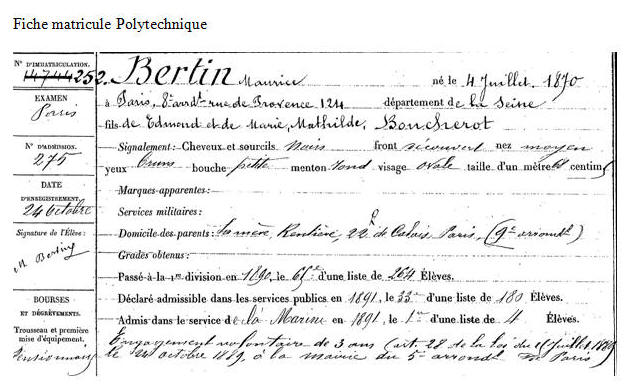 Fiche matricule Polytechnique
N° D'IMMATRICULATION.
14744 252.
EXAMEN
Paris
N° D'ADMISSION.
275
DATE
D'ENREGISTREMENT.
24 Octobre
Signature de l'Élève :
M. Bertin
BOURSES
ET DÉGRÈVEMENTS.
Trousseau et première
mise d'équipement.
Pensionnaire
Bertin Maurice né le 4 Juillet 1870
à Paris, 8e arrdt rue de Provence 124 département de la Seine
fils de Edmond et de Marie, Mathilde, Boucherot
Signalement : Cheveux et sourcils noirs front découvert nez moyen
yeux bruns bouche petite menton rond visage ovale taille d'un mètre centim
Marques apparentes :
Services militaires :
Domicile des parents : Sa mère, Rentière, 22 R. de Calais, Paris, (9e arrondt)
Grades obtenus :
Passé à la 1re division en 1890, le 65e d'une liste de 264 Élèves.
Déclaré admissible dans les services publics en 1891, le 33me d'une liste de 180 Élèves.
Admis dans le service de la Marine en 1891, le 1er d'une liste de 4 Élèves.
Engagement volontaire de 3 ans (art. 28 de la loi du Juillet 1889
le 24 octobre 1889, à la mairie du 5e arrondt de Paris